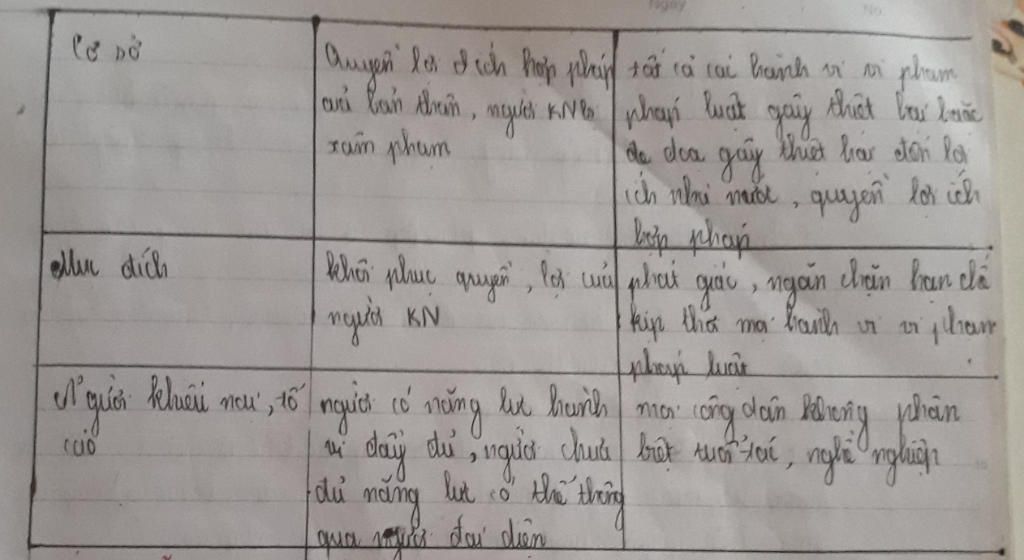 Ngày No
Cơ sở
Quyền lợi ích hợp pháp
của bản thân, người KN bị
xâm phạm
tất cả các hành vi vi phạm
pháp luật gây thiệt hại hoặc
đe dọa gây thiệt hại đến lợi
ích nhà nước, quyền lợi ích
hợp pháp
Mục đích
khôi phục quyền, lợi của
người KN
phát giác, ngăn chặn hạn chế
kịp thời mọi hành vi vi phạm
pháp luật
Người khiếu nại, tố
cáo
người có năng lực hành
vi đầy đủ, người chưa
đủ năng lực có thể thông
qua người đại diện
mọi công dân không phân
biệt tuổi tác, nghề nghiệp